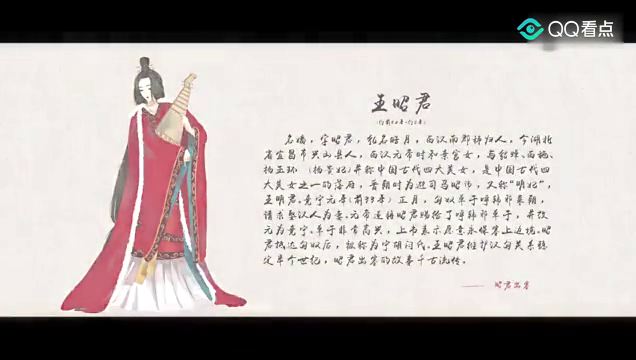 QQ看点
王昭君
名嫱，字昭君，乳名皓月，西汉南郡秭归人，今湖北
省宜昌市兴山县人，西汉元帝时和亲宫女，与貂蝉、西施、
杨玉环（杨贵妃）并称中国古代四大美女，是中国古代四
大美女之一的落雁，晋朝时为避司马昭讳，又称“明妃”，
王明君。竟宁元年（前33年）正月，匈奴单于呼韩邪来朝，
请求娶汉人为妻。元帝遂将昭君赐给了呼韩邪单于，并改
元为竟宁。单于非常高兴，上书表示愿意永保塞上边境。昭
君抵达匈奴后，被称为宁胡阏氏。王昭君维护汉匈关系稳
定半个世纪，昭君出塞的故事千古流传。
—— 昭君出塞